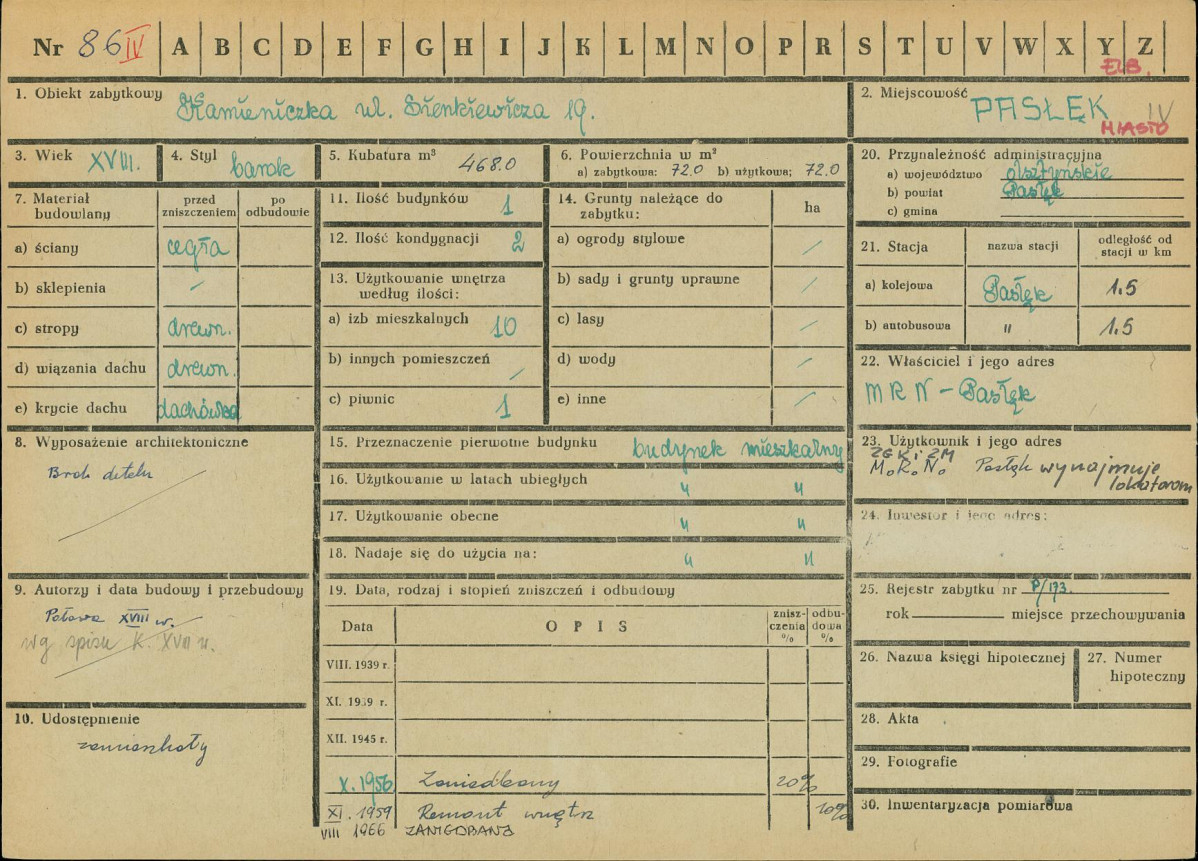 Nr 86 IV A B C D E F G H I J K L M N O P R S T U V W X Y Z
ELB.
1. Obiekt zabytkowy Kamieniczka ul. Sienkiewicza 19.
2. Miejscowość PASŁĘK IV
MIASTO
3. Wiek XVIII.
4. Styl barok
5. Kubatura m³ 468.0
6. Powierzchnia w m²
a) zabytkowa: 72.0 b) użytkowa; 72.0
7. Materiał budowlany
przed zniszczeniem
po odbudowie
a) ściany cegła
b) sklepienia -
c) stropy drewn.
d) wiązania dachu drewn.
e) krycie dachu dachówka
8. Wyposażenie architektoniczne
Brak detalu
9. Autorzy i data budowy i przebudowy
Połowa XVIII w.
wg spisu k. XVII w.
10. Udostępnienie
zamieszkały
11. Ilość budynków 1
12. Ilość kondygnacji 2
13. Użytkowanie wnętrza
według ilości:
a) izb mieszkalnych 10
b) innych pomieszczeń /
c) piwnic 1
14. Grunty należące do
zabytku:
ha
a) ogrody stylowe /
b) sady i grunty uprawne /
c) lasy /
d) wody /
e) inne /
15. Przeznaczenie pierwotne budynku budynek mieszkalny
16. Użytkowanie w latach ubiegłych " "
17. Użytkowanie obecne " "
18. Nadaje się do użycia na: " "
19. Data, rodzaj i stopień zniszczeń i odbudowy
Data
OPIS
znisz-
czenia
%
odbu-
dowa
%
VIII. 1939 r.
XI. 1939 r.
XII. 1945 r.
X. 1956 Zaniedbany 20%
XI. 1959 Remont wnętrz 10%
VIII 1966 ZANIEDBANA
20. Przynależność administracyjna
a) województwo olsztyńskie
b) powiat Pasłęk
c) gmina
21. Stacja
nazwa stacji
odległość od
stacji w km
a) kolejowa Pasłęk 1.5
b) autobusowa " 1.5
22. Właściciel i jego adres
MRN - Pasłęk
23. Użytkownik i jego adres
ZGK i ZM
M.R.N. Pasłęk wynajmuje
lokatorom
24. Inwestor i jego adres:
25. Rejestr zabytku nr P/173.
rok miejsce przechowywania
26. Nazwa księgi hipotecznej
27. Numer
hipoteczny
28. Akta
29. Fotografie
30. Inwentaryzacja pomiarowa